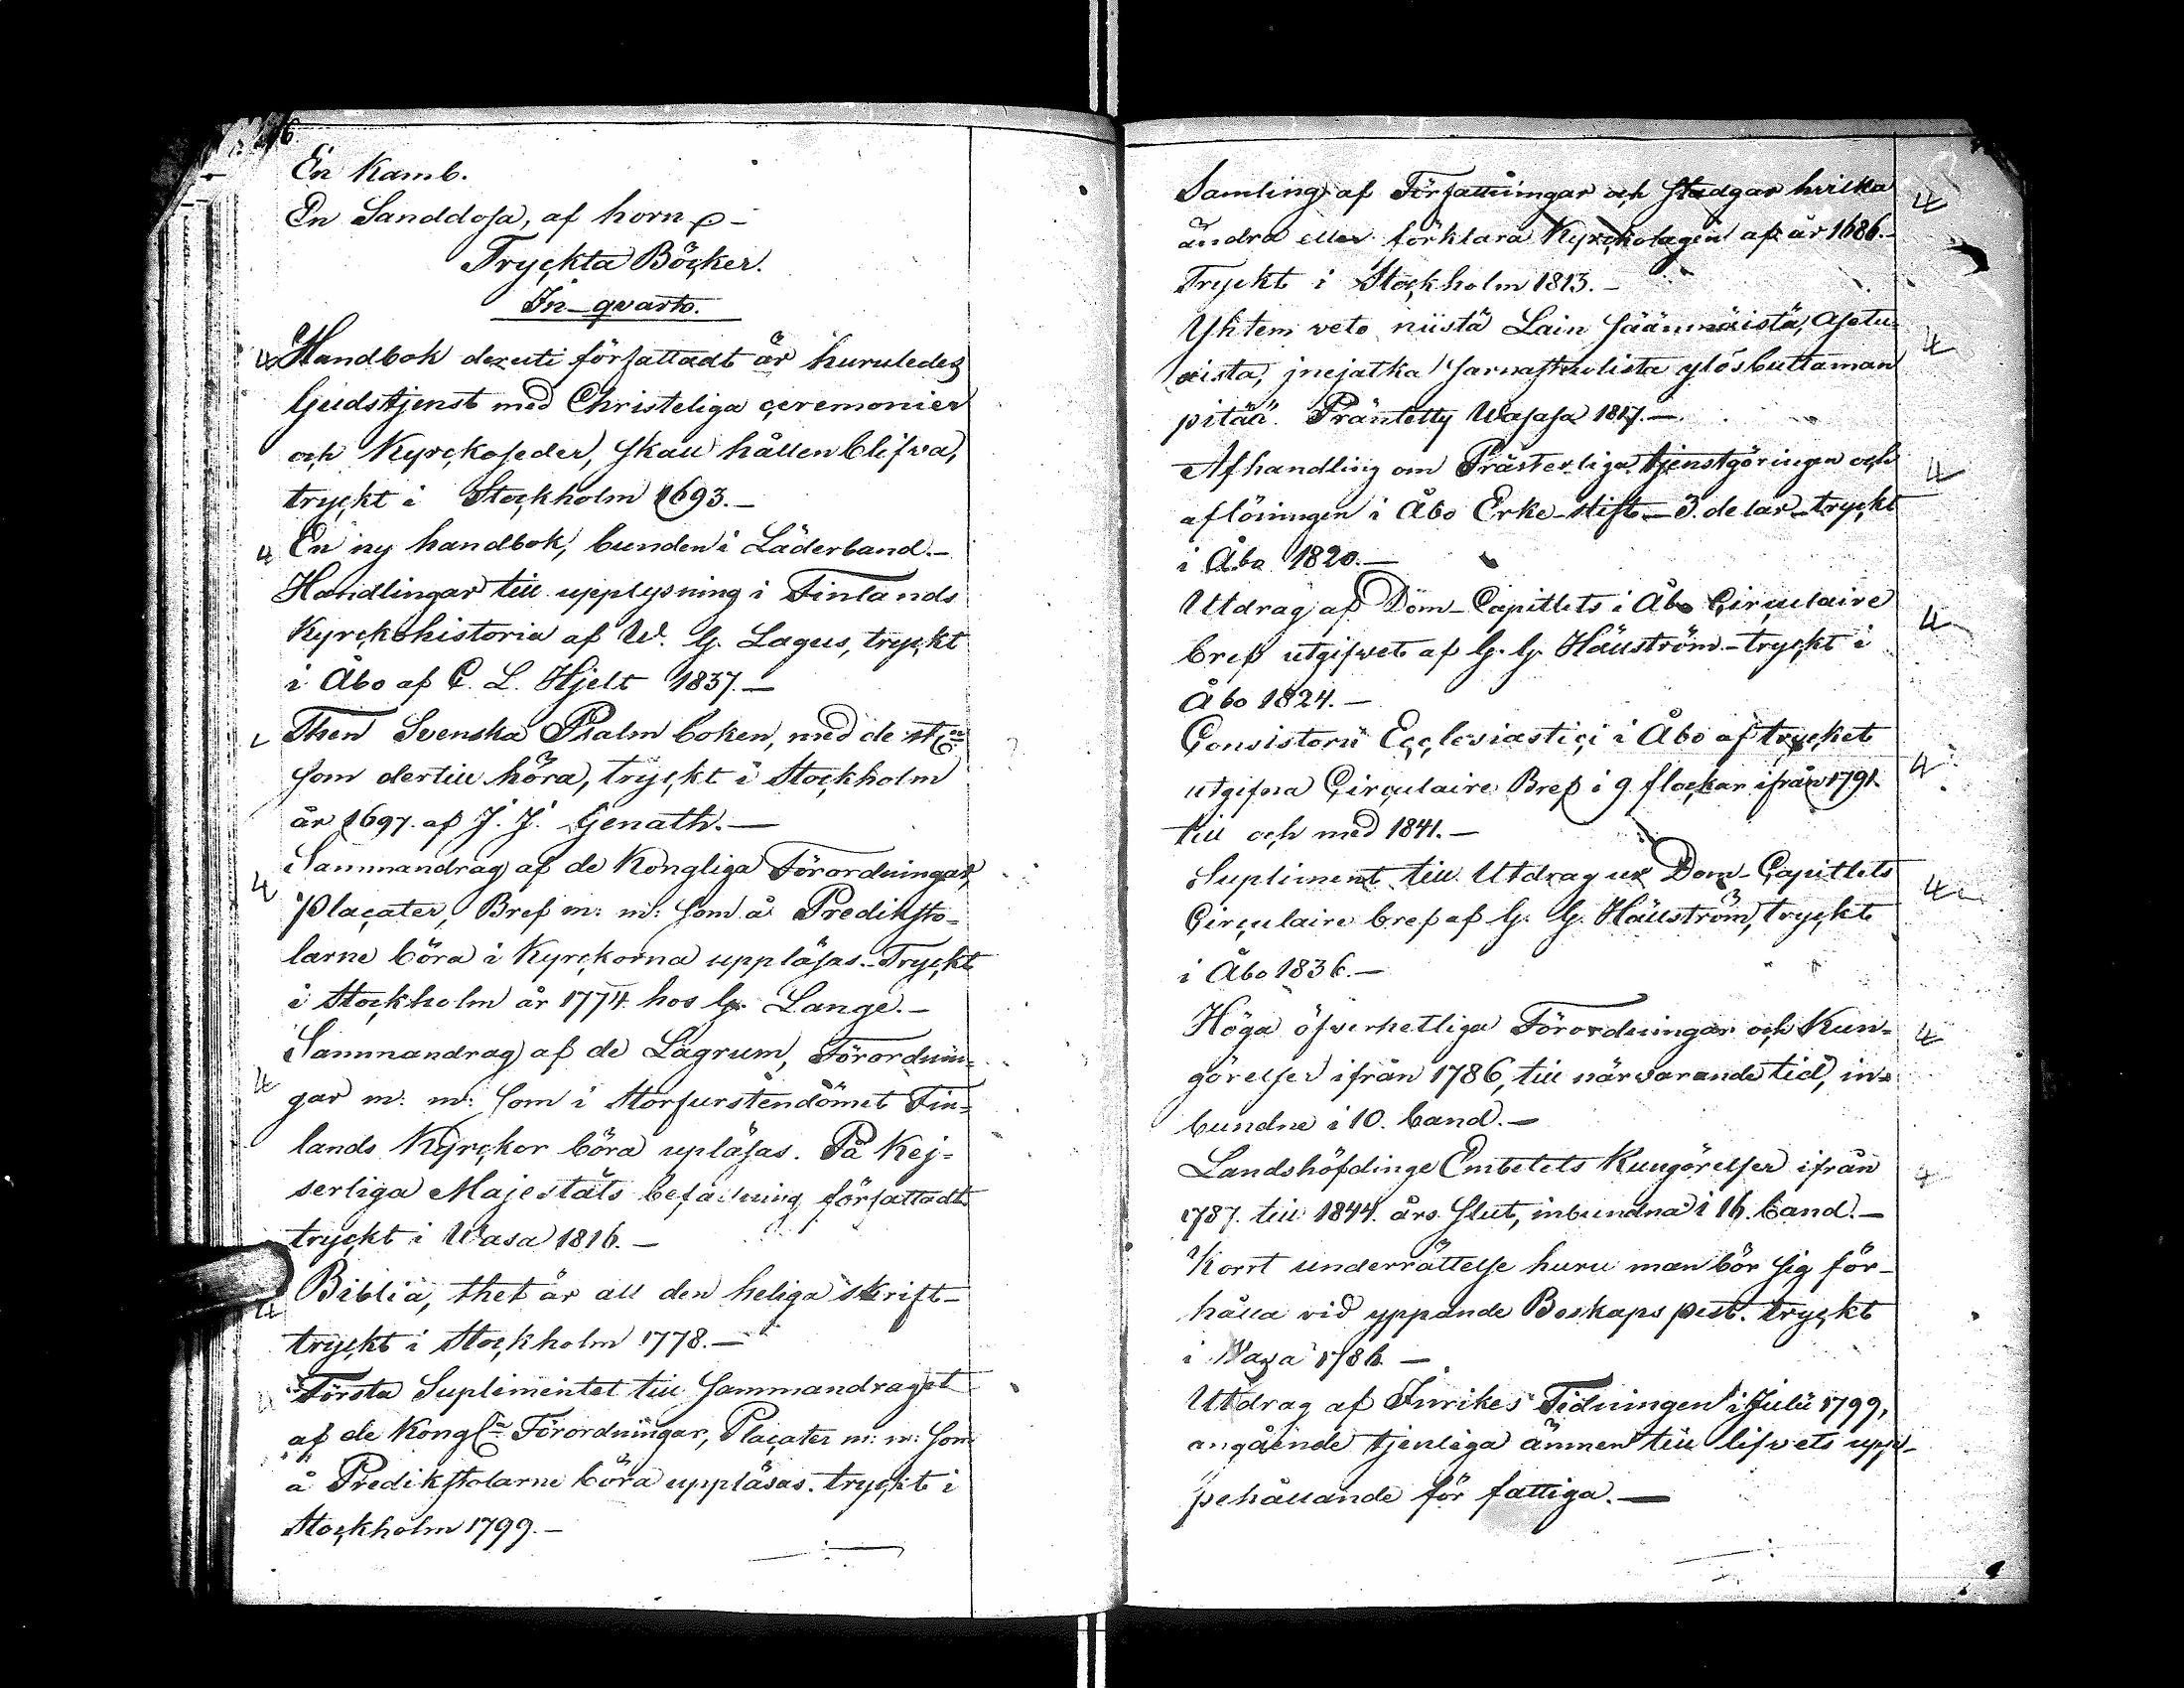 En Kamb.
En Sanddosa, af horn
Tryckta Böcker.
In-qvarto.
4 Handbok deruti författadt är huruledes
Gudstjenst med Christeliga ceremonier
och Kyrckoseder, skall hållen blifva,
tryckt i Stockholm 1693.-
4 En ny handbok, bunden i Läderband.-
Handlingar till upplysning i Finlands
Kyrckohistoria af W. G. Lagus, tryckt
i Åbo af C. L. Hjelt 1837.-
Then Svenska Psalm boken, med de st
som dertill höra, tryckt i Stockholm
år 1697. af J. J. Genath.-
4 Sammandrag af de Kongliga Förordningar,
Placater, Bref m: m: som å Prediksto-
larne böra i Kyrckorna uppläsas.- Tryckt
i Stockholm år 1774 hos G. Lange.-
4 Sammandrag af de Lagrum, Förordnin-
gar m: m: som i Storfurstendömet Fin-
lands Kyrckor böra upläsas. På Kej-
serliga Majestäts befallning författadt
tryckt i Wasa 1816.-
4 Biblia, thet är all den heliga skrift-
tryckt i Stockholm 1778.-
Första Suplimentet till Sammandraget
af de Kongl Förordningar, Placater m: m: som
å Predikstolarne böra uppläsas. tryckt i
Stockholm 1799.-
Samling af Författningar och stadgar hvilka 4
ändra eller förklara Kyrckolagen af år 1686.-
Tryckt i Stockholm 1813.-
Yhtem veto niistä Lain Säännöistä, Asetu- 4
xista, jnejatka Sarnastuolista ylösluettaman
pitää. Präntetty Wasasa 1817.-
Afhandling om Prästerliga tjenstgöringen och 4
aflöningen i Åbo Erke-stift- 3. delar- tryckt
i Åbo 1820.-
Utdrag af Dom-Capitlets i Åbo Circulaire 4
bref utgifvet af G. G. Hällström- tryckt i
Åbo 1824.-
Consistorii Ecclesiastici i Åbo af trycket 4
utgifna Circulaire Bref i 9 flockar ifrån 1791.
till och med 1841.-
Supliment till Utdrag ur Dom-Capitlets 4
Circulaire bref af G. G. Hällström, tryckt
i Åbo 1836.-
Höga öfverhetliga Förordningar och Kun- 4
görelser ifrån 1786, till närvarande tid, in-
bundne i 10. band.-
Landshöfdinge Embetets Kungörelser ifrån 4
1787. till 1844. års slut, inbundna i 16. band.-
Kort underrättelse huru man bör sig för-
hålla vid yppande Boskaps pest. tryckt
i Wasa 1786.-
Utdrag af Inrikes Tidningen i Julii 1799,
angående tjenliga ämnen till lifvets upp-
pehållande för fattiga.-